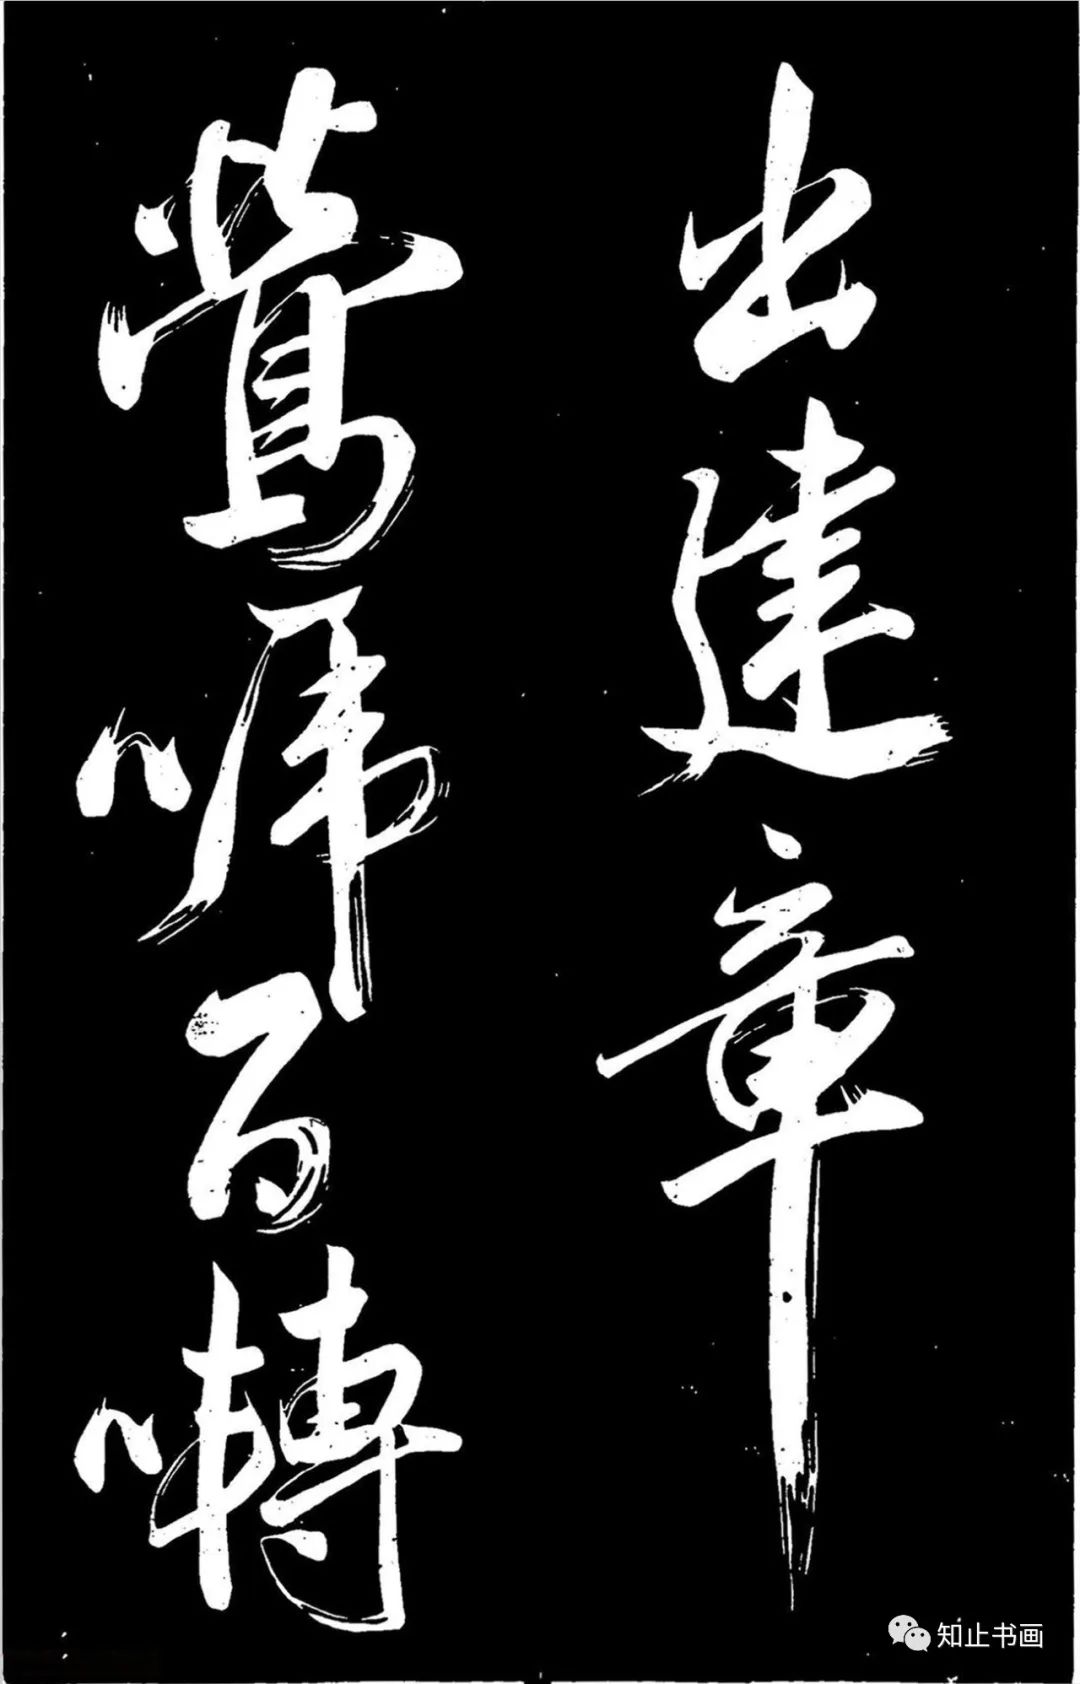 出建章
鶯啼百囀
知止书画